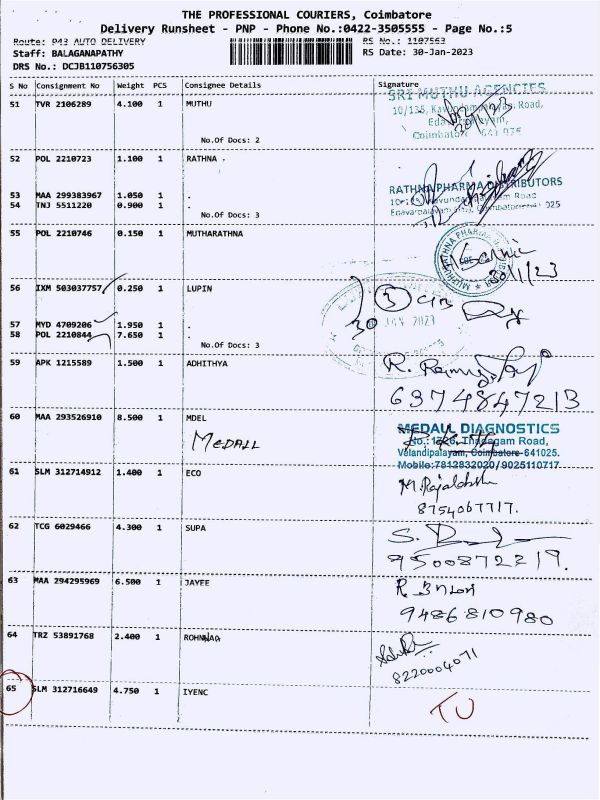 THE PROFESSIONAL COURIERS, Coimbatore
Delivery Runsheet - PNP - Phone No.:0422-3505555 - Page No.:5
Route: P43 AUTO DELIVERY RS No.: 1107563
Staff: BALAGANAPATHY RS Date: 30-Jan-2023
DRS No.: DCJB110756305
S No Consignment No Weight PCS Consignee Details Signature
51 TVR 2106289 4.100 1 MUTHU
SRI MUTHU AGENCIES
10/135, Kavundampalayam Road,
Edayarpalayam,
Coimbatore - 641 025
No.Of Docs: 2
52 POL 2210723 1.100 1 RATHNA .
RATHNA PHARMA DISTRIBUTORS
53 MAA 299383967 1.050 1 .
54 TNJ 5511220 0.900 1 .
Edayarpalayam Coimbatore-641 025
No.Of Docs: 3
55 POL 2210746 0.150 1 MUTHARATHNA
30/1/23
56 IXM 503037757 0.250 1 LUPIN
3 CB
57 MYD 4709206 1.950 1 .
30 JAN 2023
58 POL 2210844 7.650 1 .
No.Of Docs: 3
59 APK 1215589 1.500 1 ADHITHYA
6374847213
60 MAA 293526910 8.500 1 MDEL
MEDALL
MEDALL DIAGNOSTICS
Thadagam Road,
Velandipalayam, Coimbatore-641025.
Mobile:7812832020/9025110717
61 SLM 312714912 1.400 1 ECO
8754067717.
62 TCG 6029466 4.300 1 SUPA
9500872219.
63 MAA 294295969 6.500 1 JAYEE
9486810980
64 TRZ 53891768 2.400 1
8220004071
65 SLM 312716649 4.750 1 IYENC
TU